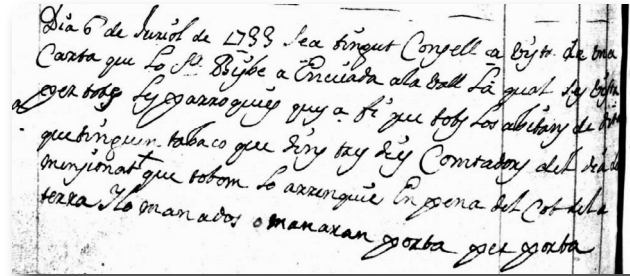 Dia 6 de Juriol de 1733 sea tingut Consell a vista de una
Carta que lo Sr. Bisbe a Enviada ala Vall la qual sey vista
per tots sy parroquies quy a fi que tots los abitans de
que tinguen tabaco que dins tres dies Comtadors del dia de
mensionat que tobom lo arrenquie En pena del Cot de la
terra Y lo manados o manaran porta per porta